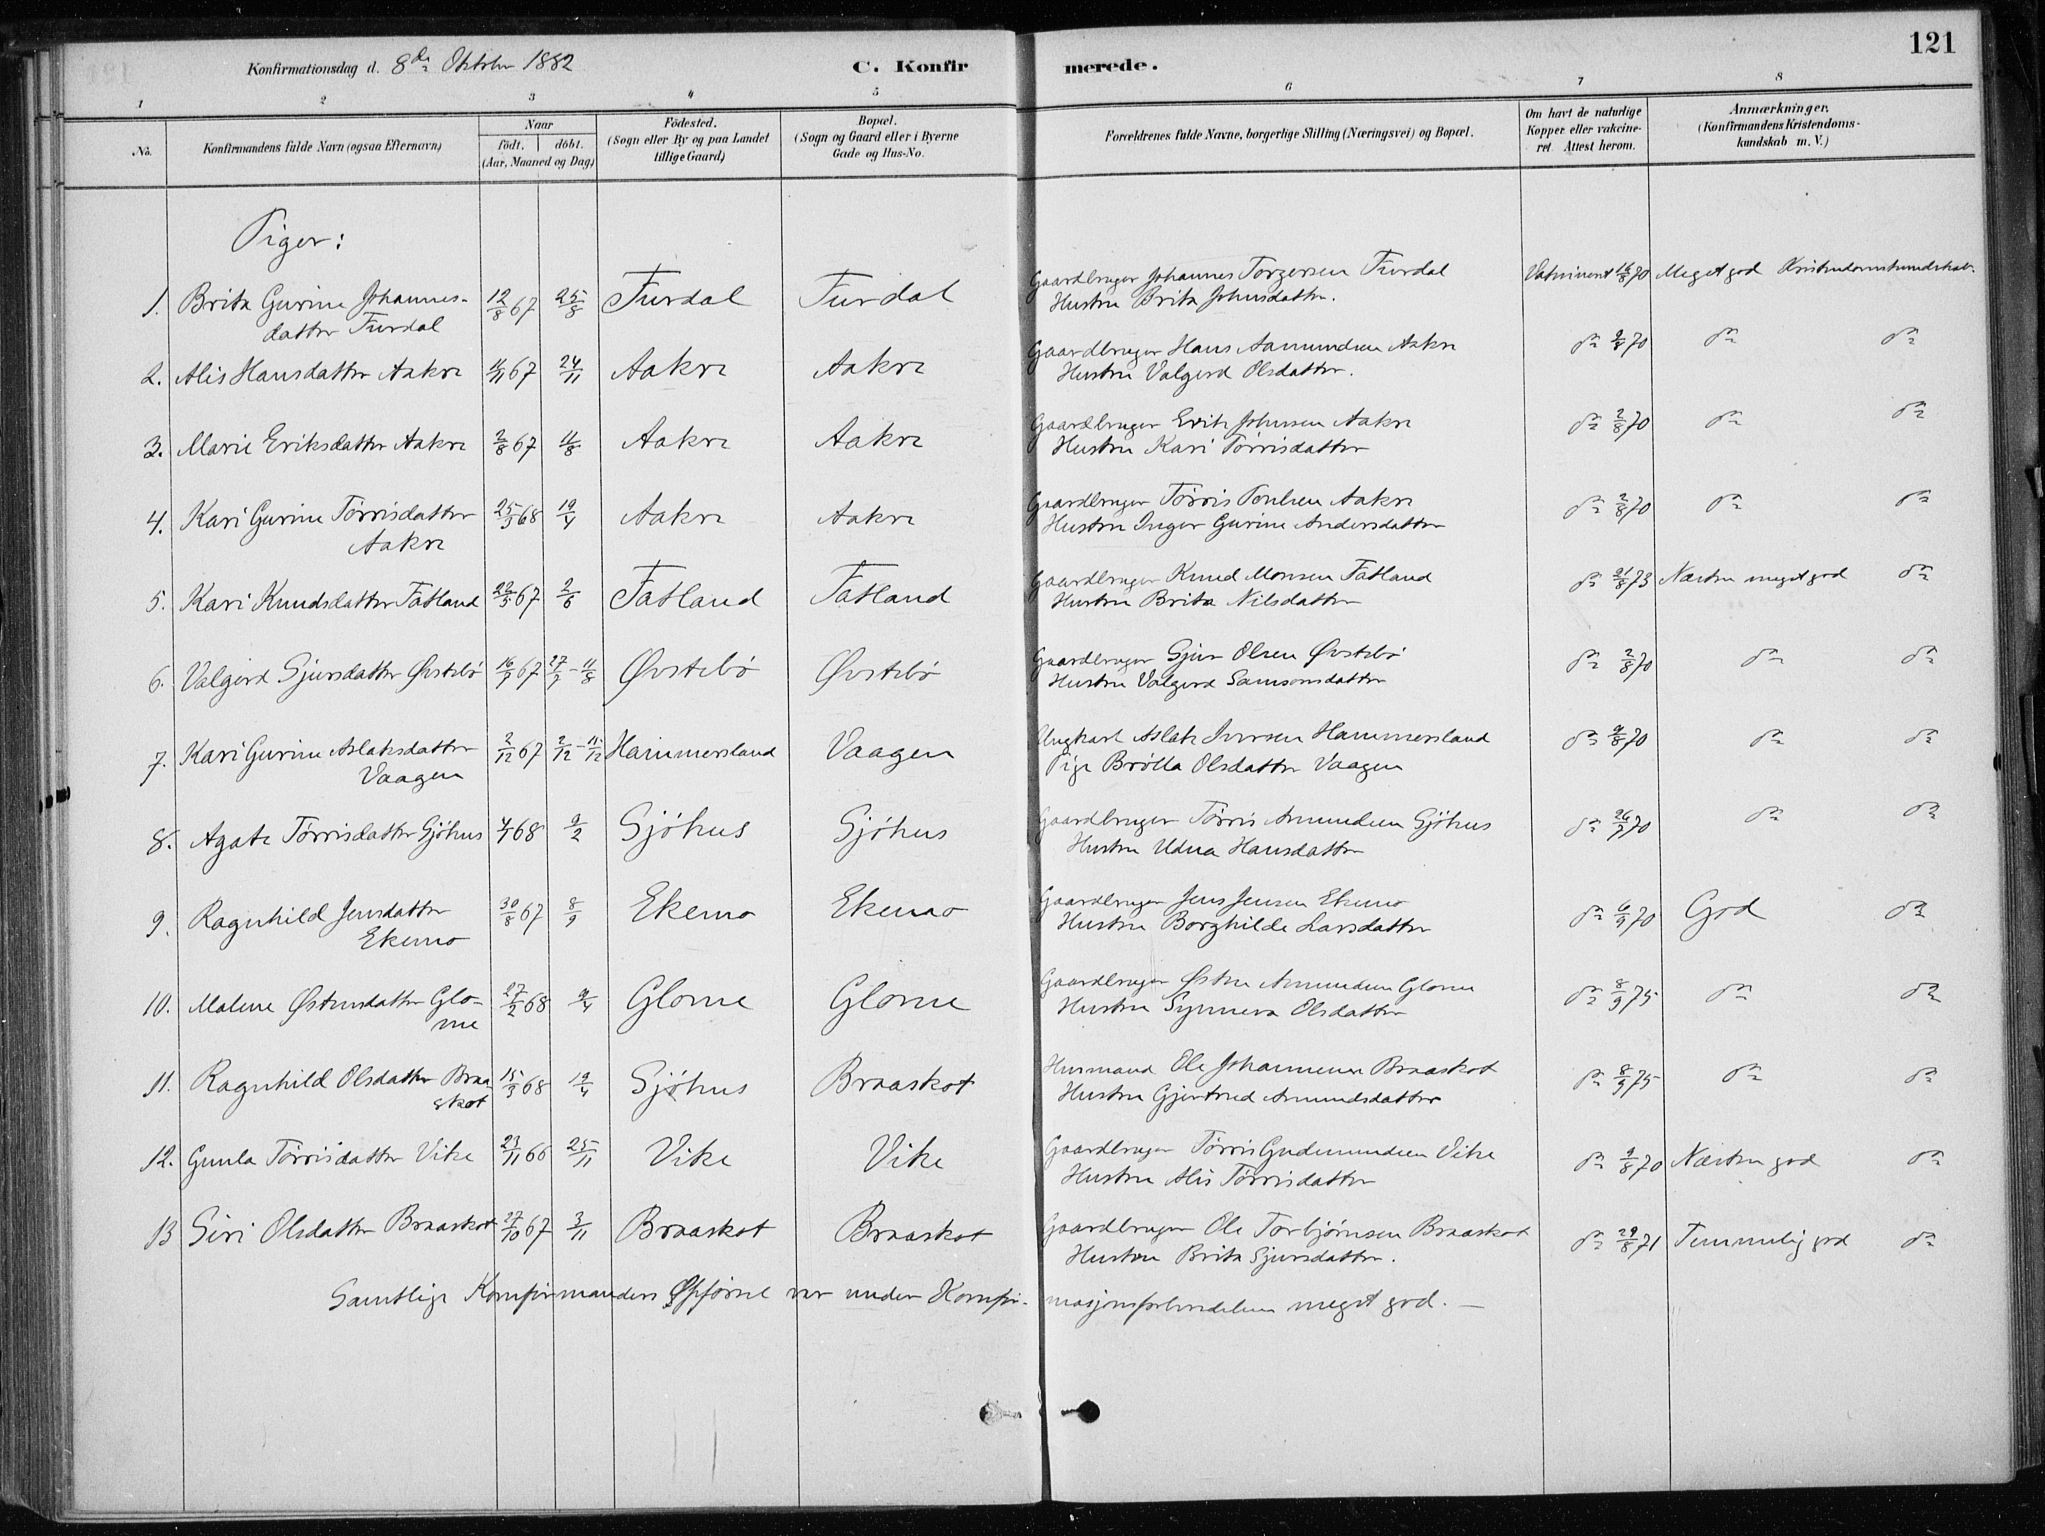 121
Konfirmationsdag d. 8de Oktober 1882 C. Konfir merede.
1 2 3 4 5 6 7 8
No. Konfirmandens fulde Navn (ogsaa Efternavn) Naar födt. döbt. (Aar, Maaned og Dag) Födested. (Sogn eller By og paa Landet tillige Gaard) Bopæl. (Sogn og Gaard eller i Byerne Gade og Hus-No. Forældrenes fulde Navne, borgerlige Stilling (Næringsvei) og Bopæl. Om havt de naturlige Kopper eller vakcineret. Attest herom. Anmærkninger. (Konfirmandens Kristendomskundskab m. V.)
Piger:
1. Brita Gurine Johannes- 12/8 67 25/8 Furdal Furdal Gaardbruger Johannes Torgersen Furdal Vakcineret 16/8 70 Meget god Kristendomskundskab.
datter Furdal Hustru Brita Johnsdatter.
2. Alis Hansdatter Aakre 11/11 67 24/11 Aakre Aakre Gaardbruger Hans Aamundsen Aakre do 2/8 70 do do
Hustru Valgerd Olsdatter.
3. Marie Eriksdatter Aakre 2/8 67 11/8 Aakre Aakre Gaardbruger Erik Johnsen Aakre do 2/8 70 do do
Hustru Kari Tørrisdatter
4. Kari Gurine Tørrisdatter 25/3 68 19/4 Aakre Aakre Gaardbruger Tørris Poulsen Aakre do 2/8 70 do do
Aakre Hustru Inger Gurine Andersdatter
5. Kari Knudsdatter Fatland 22/5 67 2/6 Fatland Fatland Gaardbruger Knud Monsen Fatland do 21/8 73 Næsten meget god do
Hustru Brita Nilsdatter
6. Valgerd Sjursdatter Øvstebø 16/7 67 27/7 - 11/8 Øvstebø Øvstebø Gaardbruger Sjur Olsen Øvstebø do 2/8 70 do do
Hustru Valgerd Samsonsdatter
7. Kari Gurine Aslaksdatter 2/12 67 2/12 - 15/12 Hammersland Vaagen Ungkarl Aslak Iversen Hammersland do 9/8 70 do do
Vaagen Pige Brølla Olsdatter Vaagen
8. Agate Tørrisdatter Sjøhus 4/1 68 9/2 Sjøhus Sjøhus Gaardbruger Tørris Amundsen Sjøhus do 26/7 70 do do
Hustru Udna Hansdatter
9. Ragnhild Jensdatter 30/8 67 8/9 Ekemo Ekemo Gaardbruger Jens Jensen Ekemo do 6/9 70 God do
Ekemo Hustru Borghilde Larsdatter
10. Malene Østensdatter Glo- 27/2 68 9/4 Glome Glome Gaardbruger Østen Amundsen Glome do 8/9 75 do do
me Hustru Synneva Olsdatter
11. Ragnhild Olsdatter Braa 15/3 68 19/4 Sjøhus Braaskot Husmand Ole Johannesen Braaskot do 8/9 75 do do
skot Hustru Gjertrud Amundsdatter
12. Gunla Tørrisdatter Vike 23/11 66 25/11 Vike Vike Gaardbruger Tørris Gudemundsen Vike do 9/8 70 Næsten god do
Hustru Alis Tørrisdatter
13 Siri Olsdatter Braaskot 27/10 67 3/11 Braaskot Braaskot Gaardbruger Ole Torbjørnsen Braaskot do 29/8 71 Temmelig god do
Hustru Brita Sjursdatter.
Samtlige Konfirmanders Opførsel var under Konfir- masjonsforberedelsen meget god. —